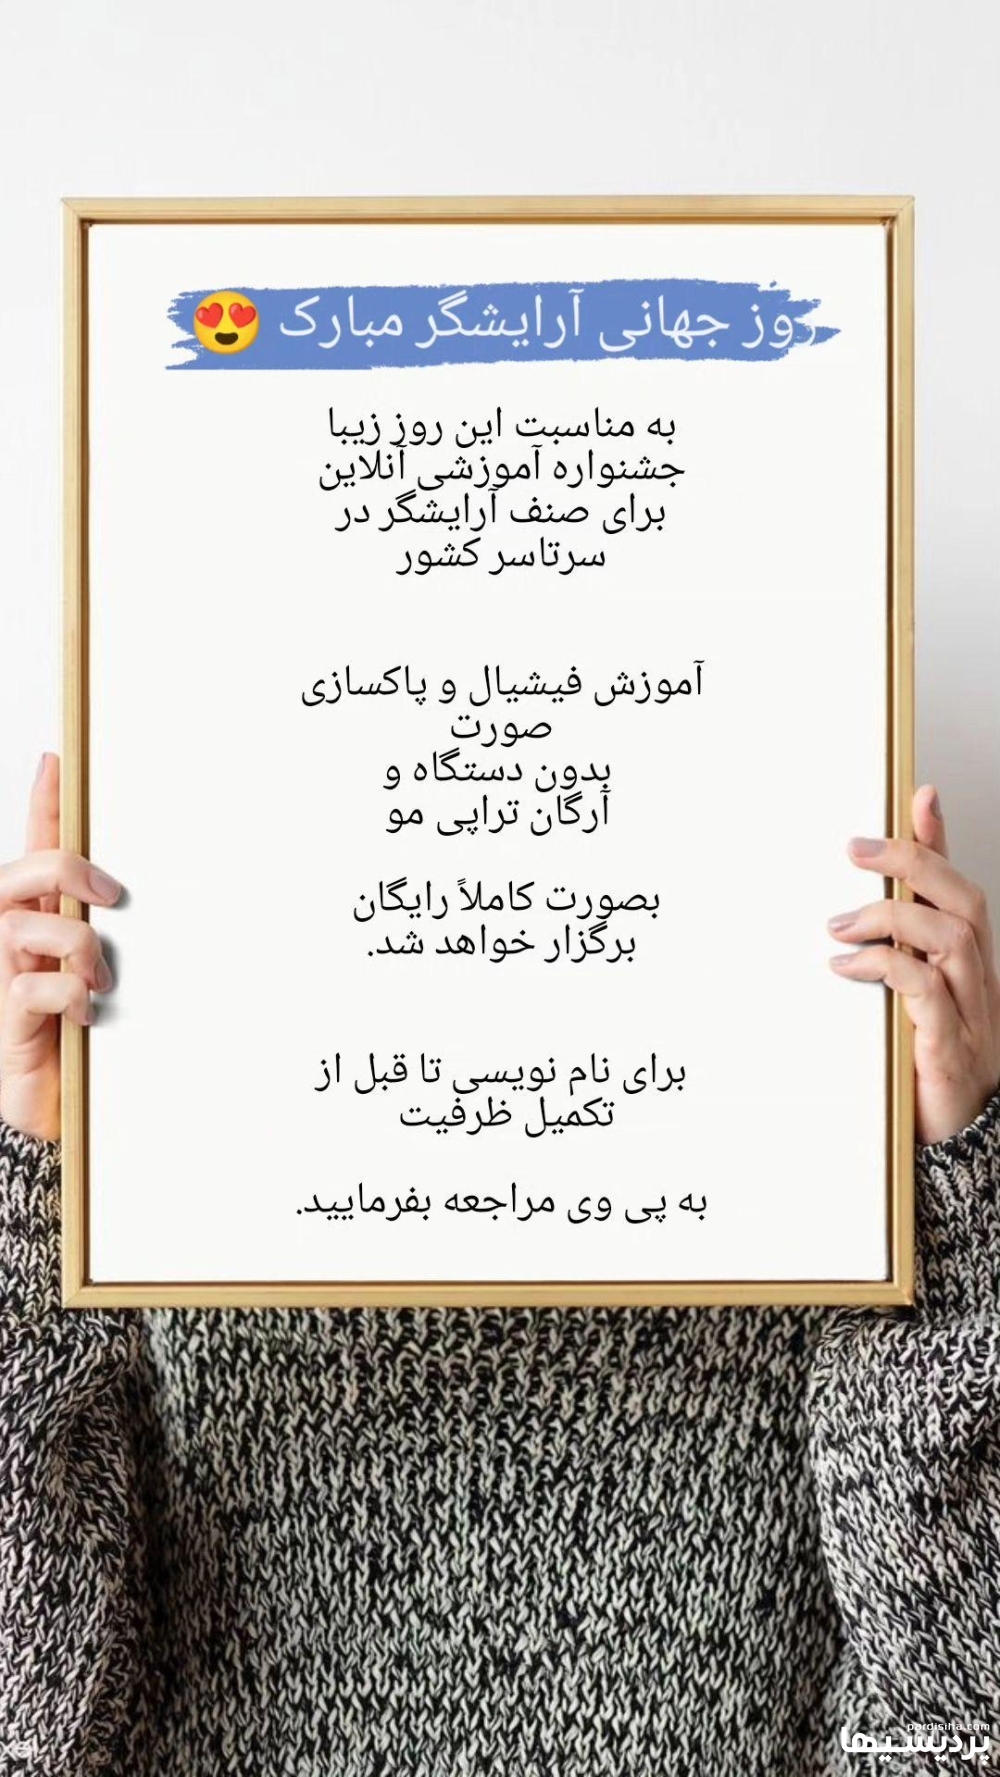 روز جهانی آرایشگر مبارک 😍
به مناسبت این روز زیبا
جشنواره آموزشی آنلاین
برای صنف آرایشگر در
سرتاسر کشور
آموزش فیشیال و پاکسازی
صورت
بدون دستگاه و
آرگان تراپی مو
بصورت کاملاً رایگان
برگزار خواهد شد.
برای نام نویسی تا قبل از
تکمیل ظرفیت
به پی وی مراجعه بفرمایید.
pardisiha.com
پردیسیها